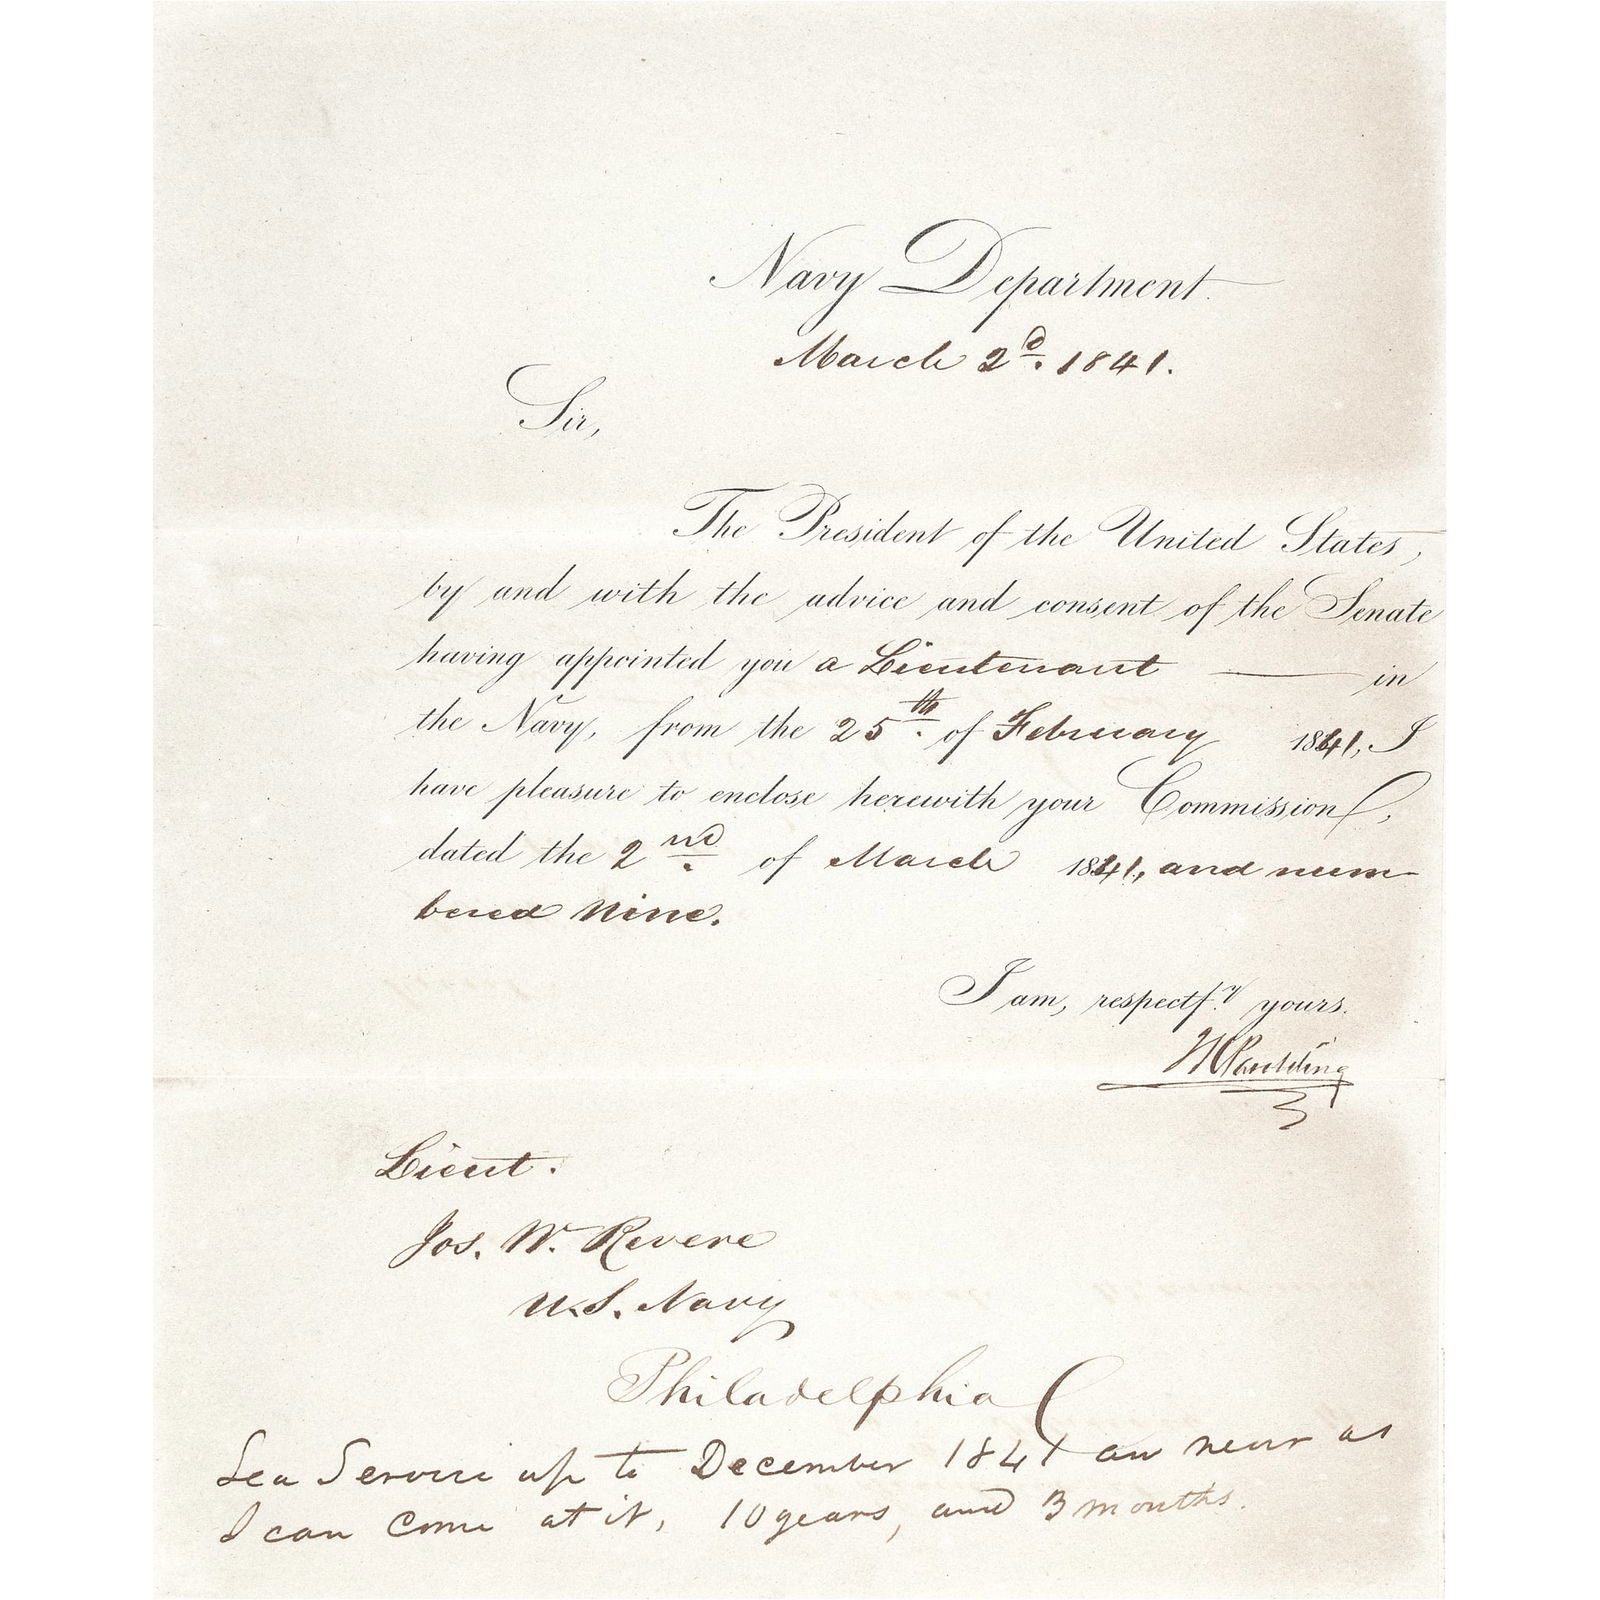 Navy Department.
March 2d. 1841.
Sir,
The President of the United States,
by and with the advice and consent of the Senate
having appointed you a Lieutenant — in
the Navy, from the 25th. of February 1841, I
have pleasure to enclose herewith your Commission,
dated the 2nd. of March 1841, and num-
bered nine.
I am, respectfy yours.
Paulding
Lieut.
Jos. W. Revere
U.S. Navy
Philadelphia
Sea Service up to December 1841 as near as
I can come at it, 10 years, and 3 months.